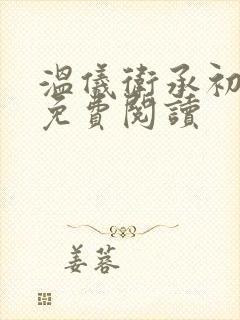 溫儀衛承初
免費閱讀
姜蓉